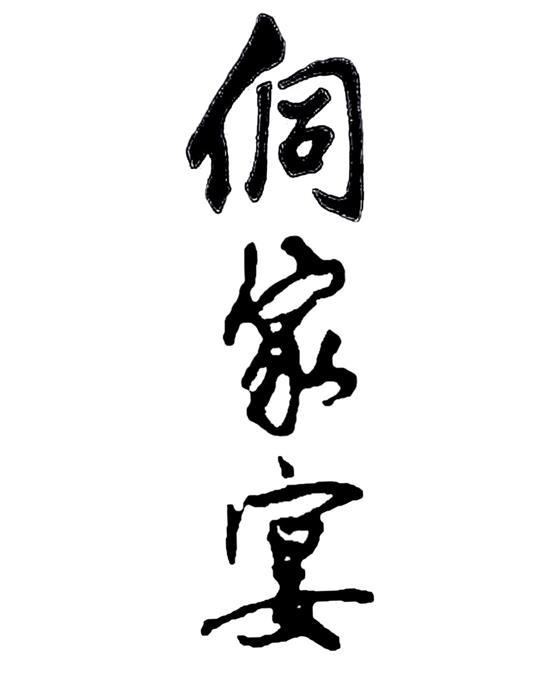 侗家宴